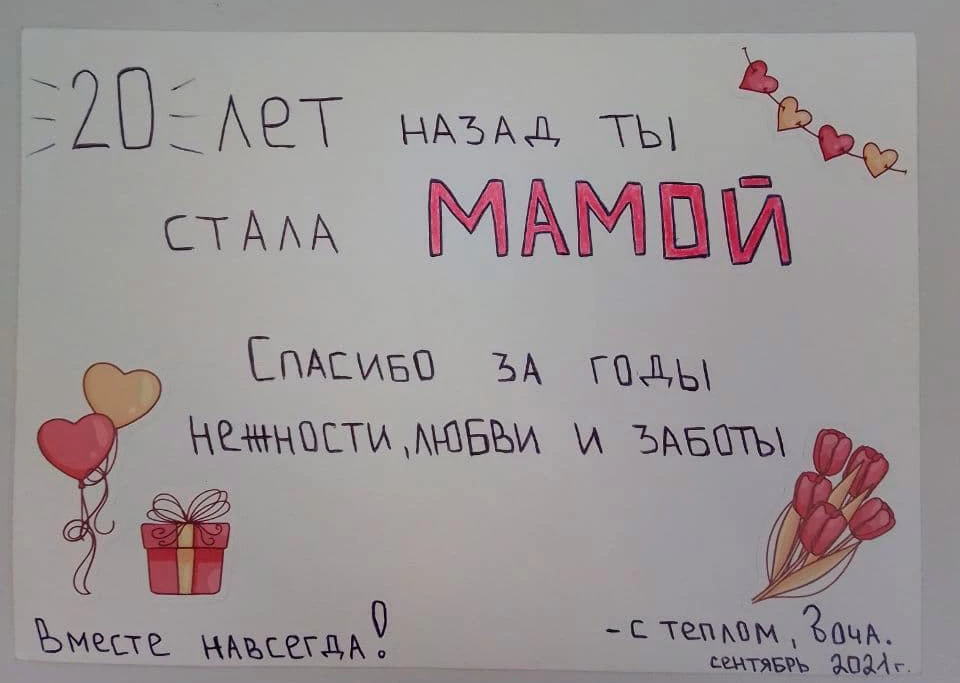 20 лет назад ты
стала МАМОЙ
Спасибо за годы
нежности, любви и заботы
Вместе навсегда!
- с теплом,
сентябрь 2021г.